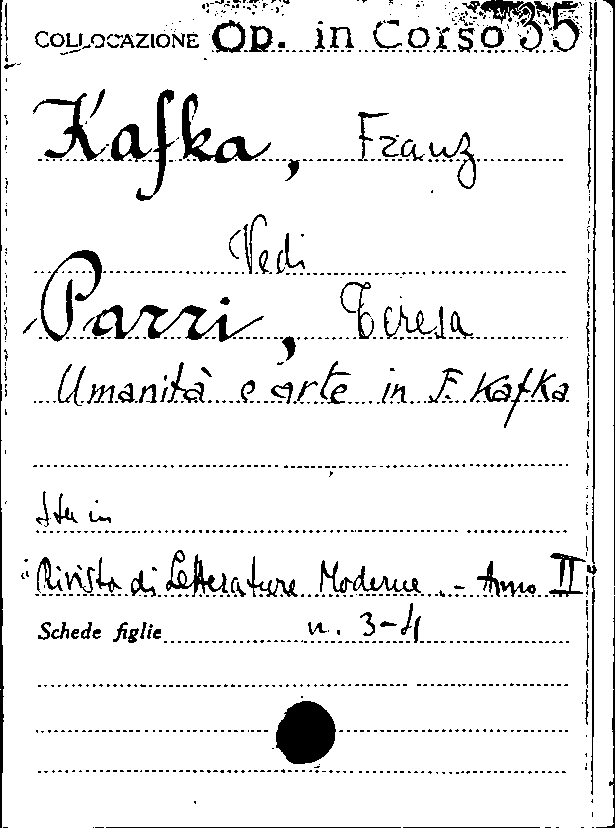 COLLOCAZIONE Op. in Corso 35
Kafka, Franz
Vedi
Parri, Teresa
Umanità e arte in F. Kafka
Sta in
"Rivista di Letterature Moderne. - Anno II"
Schede figlie n. 3-4